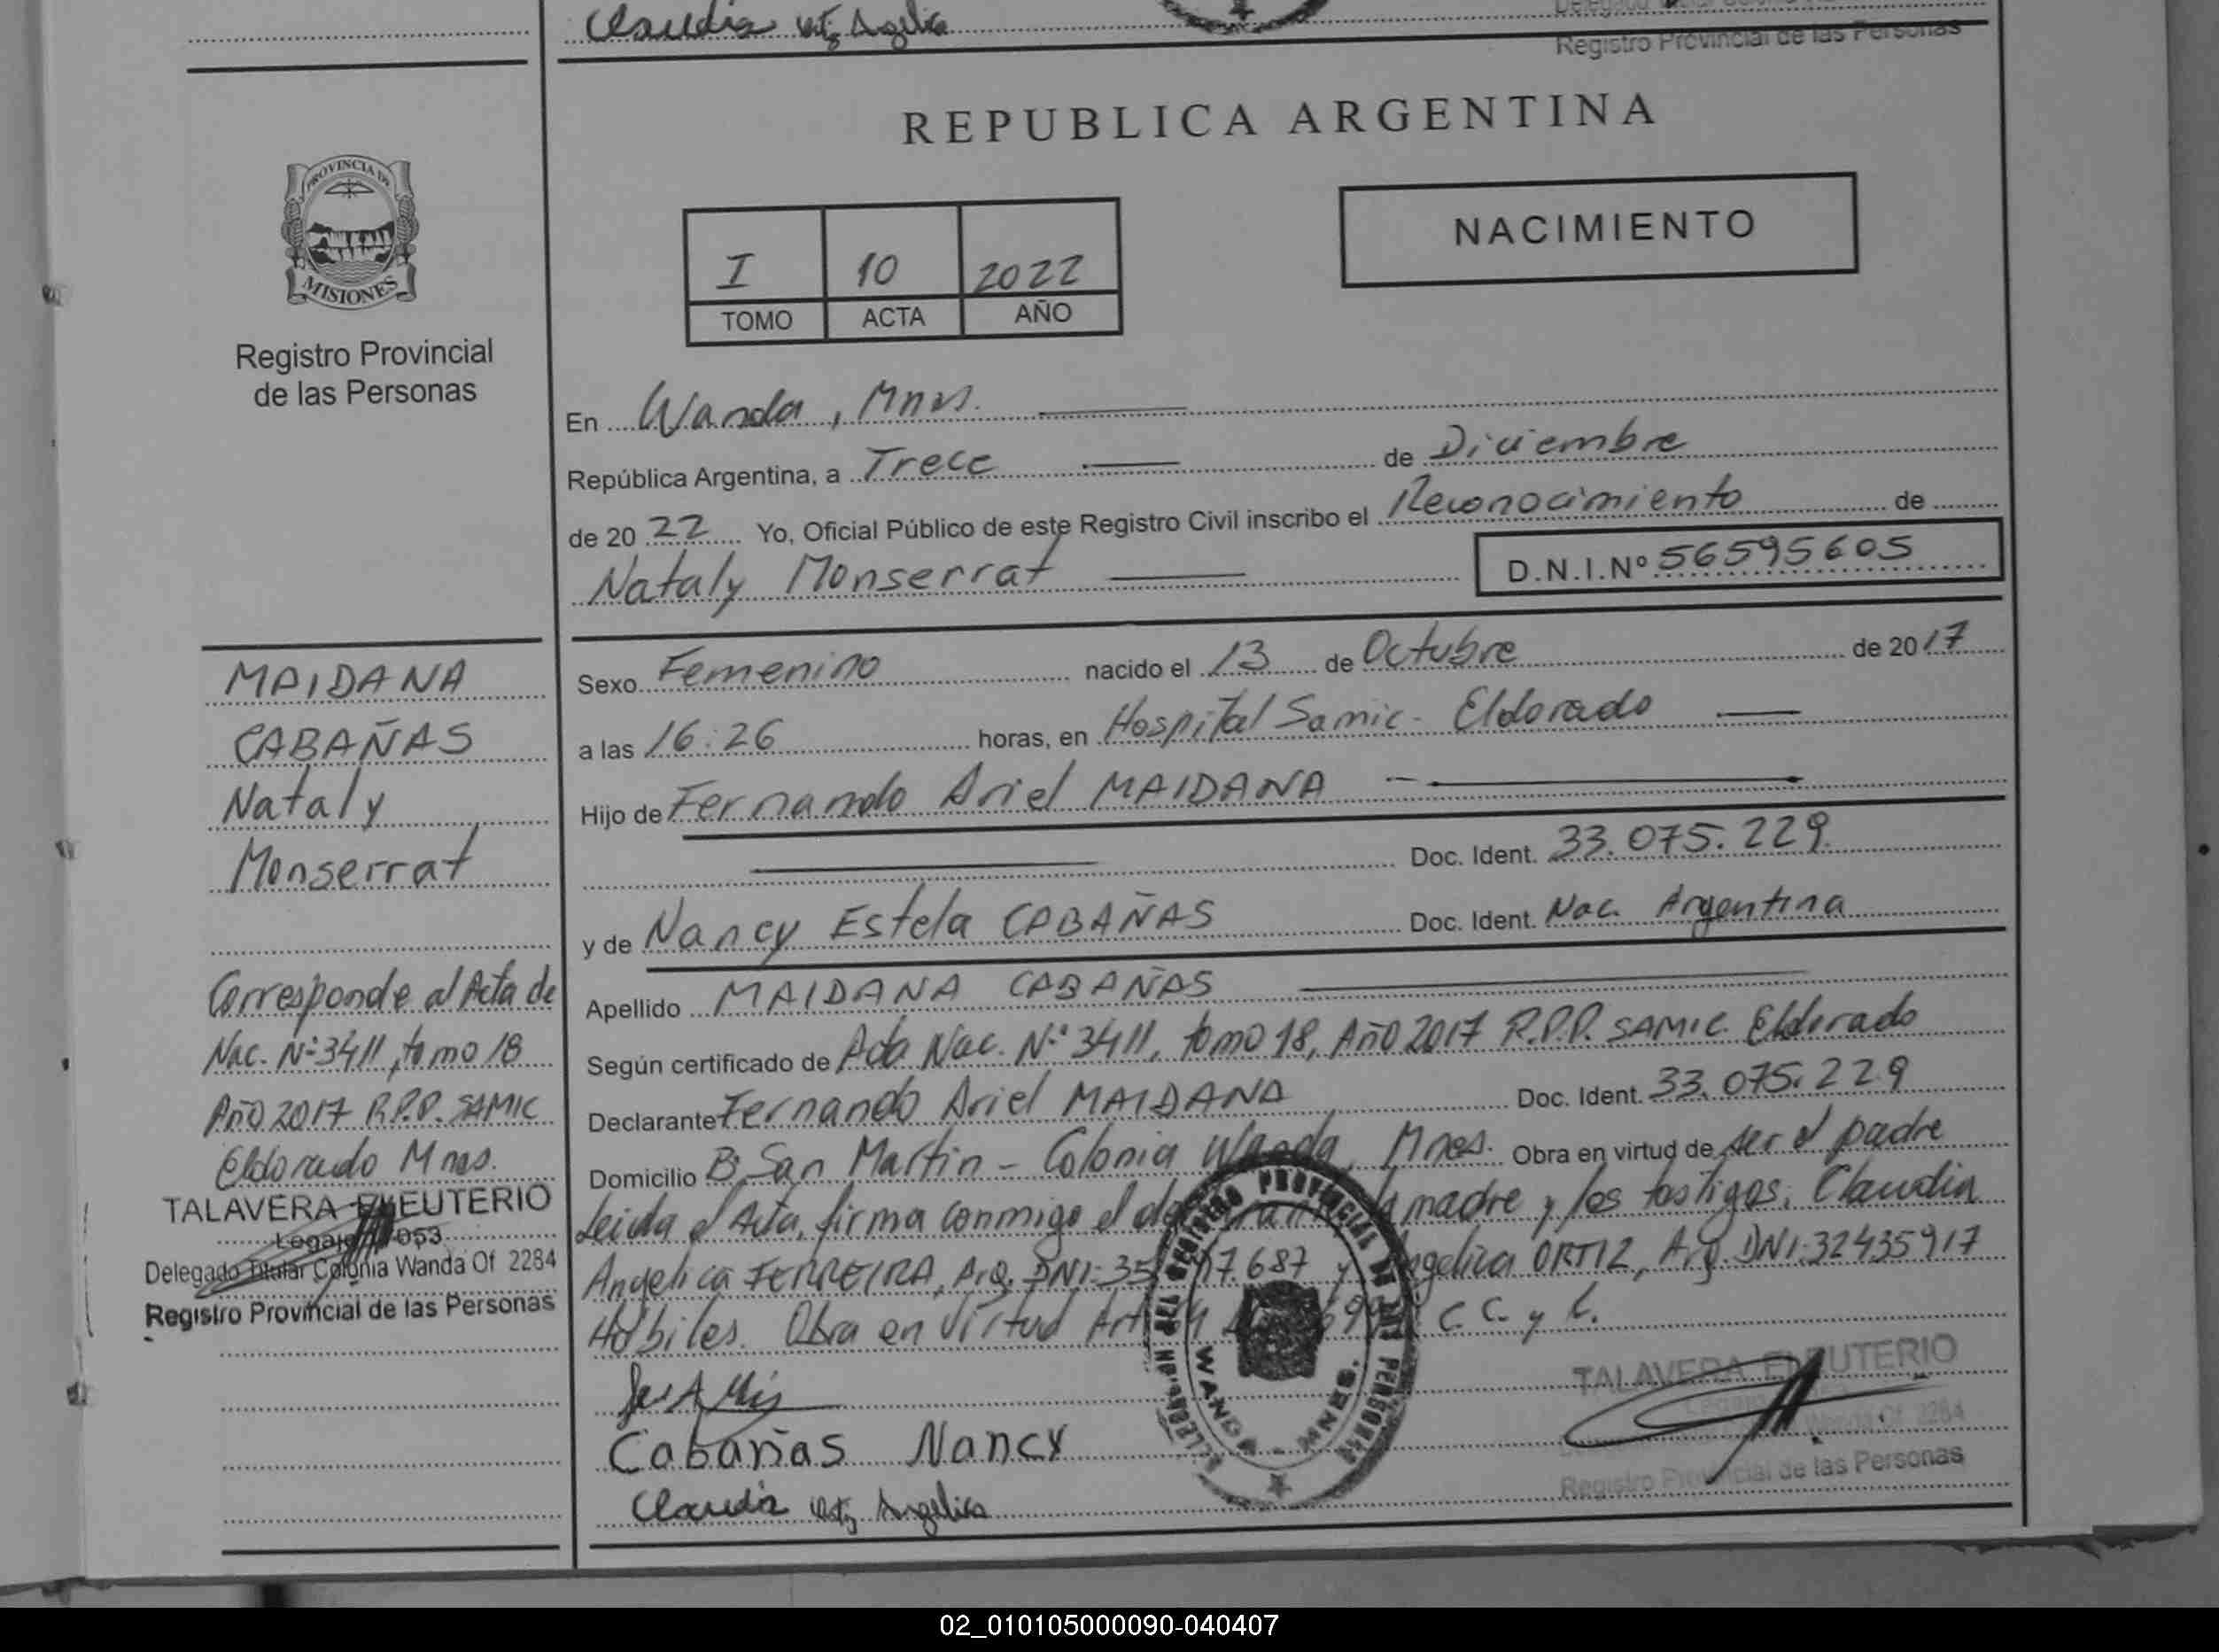 Claudia Ortiz Angelica
Registro Provincial de las Personas
PROVINCIA DE
MISIONES
Registro Provincial
de las Personas
REPUBLICA ARGENTINA
NACIMIENTO
I 10 2022
TOMO ACTA AÑO
En Wanda, Mnes.
República Argentina, a Trece de Diciembre
de 2022 Yo, Oficial Público de este Registro Civil inscribo el Reconocimiento de
Nataly Monserrat D.N.I.Nº 56595605
MAIDANA
CABAÑAS
Nataly
Monserrat
Corresponde al Acta de
Nac. Nº 3411, tomo 18
Año 2017 R.P.P. SAMIC
Eldorado Mnes.
TALAVERA ELEUTERIO
Legajo 053
Delegado Titular Colonia Wanda Of 2284
Registro Provincial de las Personas
Sexo Femenino nacido el 13 de Octubre de 2017
a las 16:26 horas, en Hospital Samic - Eldorado
Hijo de Fernando Ariel MAIDANA
Doc. Ident. 33.075.229
y de Nancy Estela CABAÑAS Doc. Ident. Nac. Argentina
Apellido MAIDANA CABAÑAS
Según certificado de Acta Nac. Nº 3411, tomo 18, Año 2017 R.P.P. SAMIC Eldorado
Declarante Fernando Ariel MAIDANA Doc. Ident. 33.075.229
Domicilio Bº San Martin - Colonia Wanda, Mnes. Obra en virtud de ser el padre
Leida el Acta, firma conmigo el declarante la madre y los testigos; Claudia
Angelica FERREIRA, Arg. DNI: 35 7.687 y Angelica ORTIZ, Arg. DNI: 32435917
Hábiles. Obra en Virtud Art. C.C. y C.
Cabañas Nancy
Claudia Ortiz Angelica
REGISTRO PROVINCIAL DE LAS PERSONAS
WANDA - MNES.
TALAVERA ELEUTERIO
Wanda Of 2284
Registro Provincial de las Personas
02_010105000090-040407